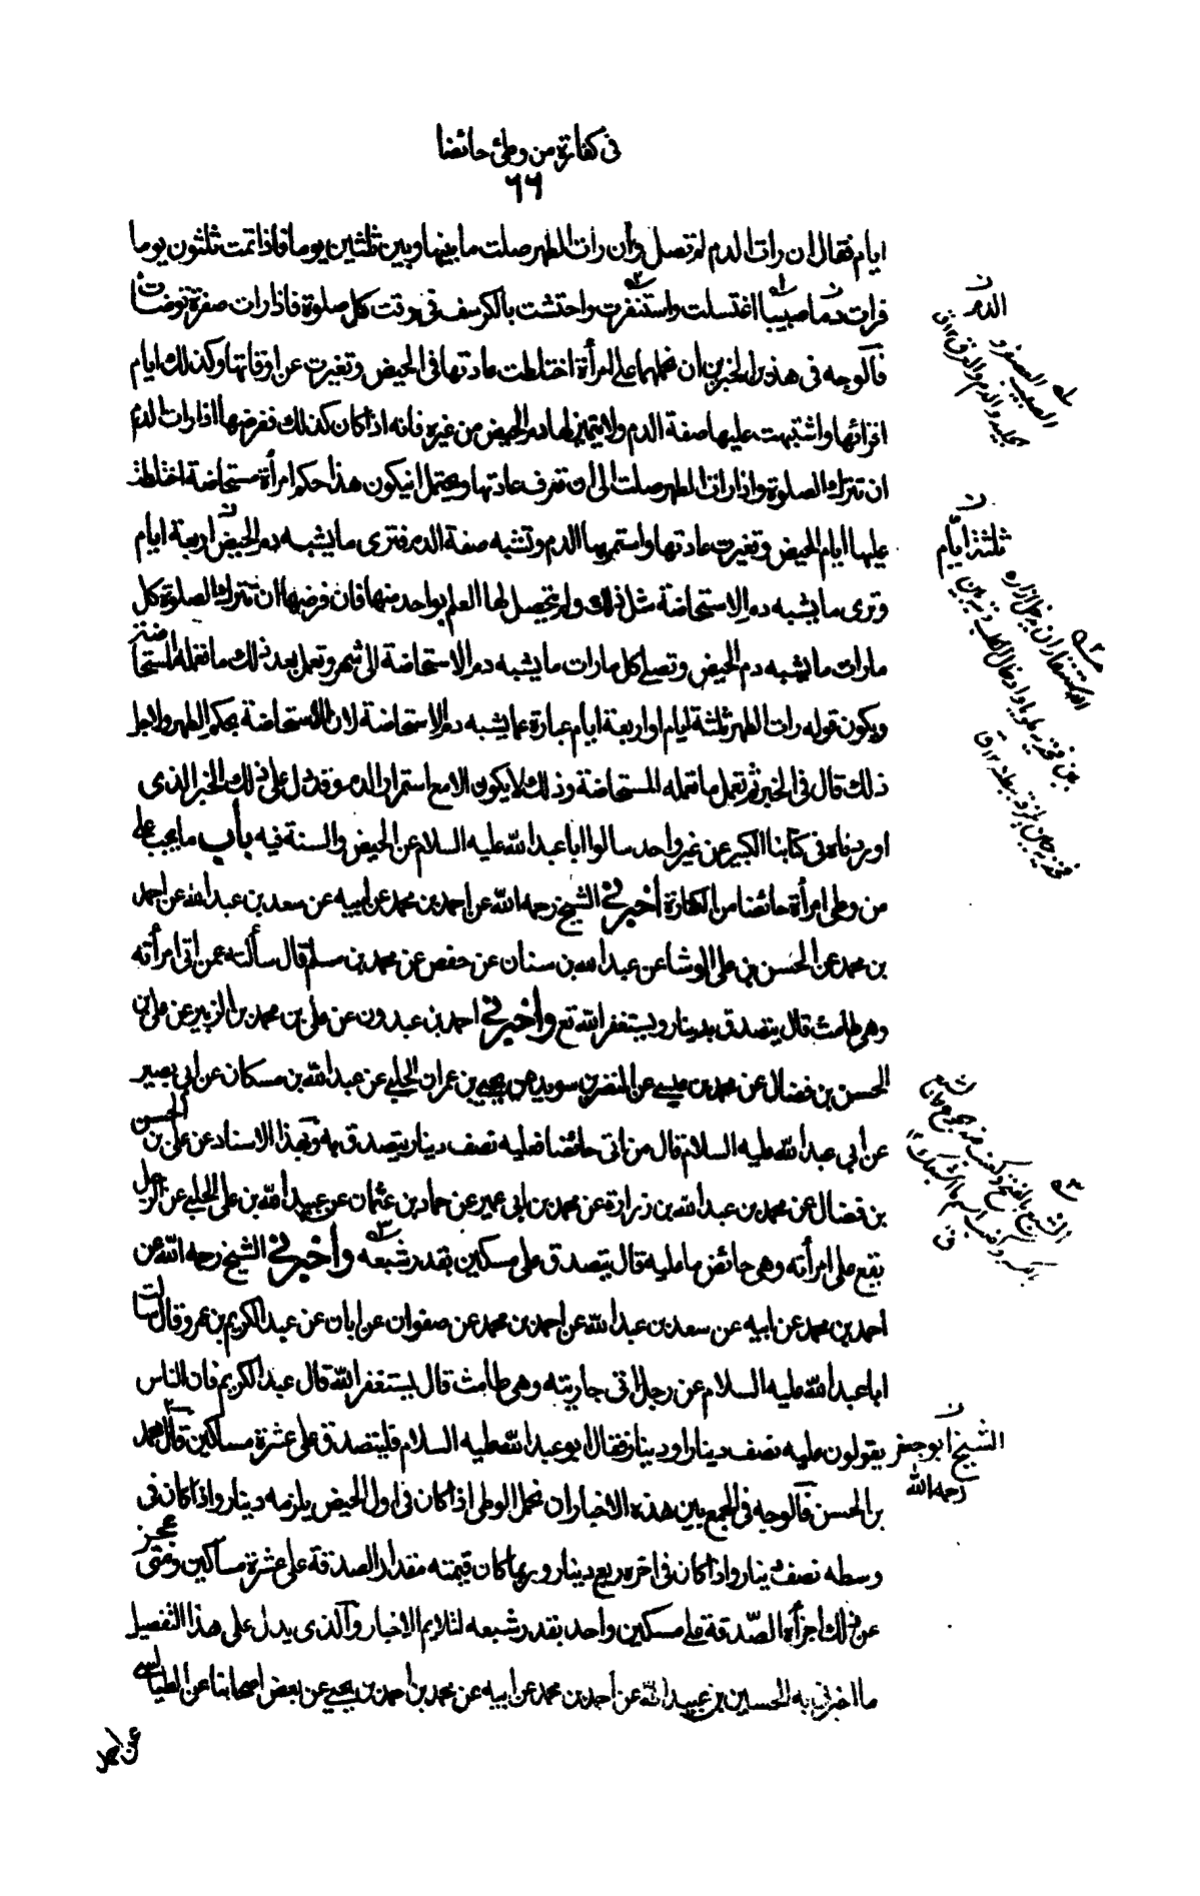 فى كفارة من وطئ حائضا
٦٦
ايام فقال ان رات الدم لم تصل وان رات الطهر صلت ما بينها وبين ثلثين يوما فاذا تمت ثلثون يوما
فرات دما صبيبا اغتسلت واستثفرت واحتشت بالكرسف فى وقت كل صلوة فاذا رات صفرة توضات
فالوجه فى هذين الخبرين ان نحملهما على امرأة اختلطت عادتها فى الحيض وتغيرت عن اوقاتها وكذلك ايام
اقرائها واشتبهت عليها صفة الدم ولا يتميز لها دم الحيض من غيره فانه اذا كان كذلك ففرضها اذا رات الدم
ان تترك الصلوة واذا رات الطهر صلت الى ان تعرف عادتها ويحتمل ان يكون هذا حكم امرأة مستحاضة اختلطت
عليها ايام الحيض وتغيرت عادتها واستمر بها الدم وتشبه صفة الدم فترى ما يشبه دم الحيض اربعة ايام
وترى ما يشبه دم الاستحاضة مثل ذلك ولم يتحصل لها العلم بواحد منها فان فرضها ان تترك الصلوة كل
ما رات ما يشبه دم الحيض وتصلى كل ما رات ما يشبه دم الاستحاضة الى شهر وتعمل بعد ذلك ما تعمله المستحاضة
ويكون قوله رات الطهر ثلثة ايام او اربعة ايام عبارة عما يشبه دم الاستحاضة لان الاستحاضة بحكم الطهر ولاجل
ذلك قال فى الخبر ثم تعمل ما تعمله المستحاضة وذلك لا يكون الا مع استمرار الدم وقد دل على ذلك الخبر الذى
اوردناه فى كتابنا الكبير عن غير واحد سالوا ابا عبد الله عليه السلام عن الحيض والسنة فيه باب ما يجب على
من وطى امرأة حائضا من الكفارة أخبرنى الشيخ رحمه الله عن احمد بن محمد عن ابيه عن سعد بن عبد الله عن احمد
بن محمد عن الحسن بن على الوشا عن عبد الله بن سنان عن حفص عن محمد بن مسلم قال سألته عمن اتى امرأته
وهى طامث قال يتصدق بدينار ويستغفر الله تع وأخبرنى احمد بن عبدون عن على بن محمد بن الزبير عن على بن
الحسن بن فضال عن محمد بن عيسى عن النضر بن سويد عن يحيى بن عمران الحلبى عن عبد الله بن مسكان عن ابى بصير
عن ابى عبد الله عليه السلام قال من اتى حائضا فعليه نصف دينار يتصدق به وبهذا الاسناد عن على بن الحسن
بن فضال عن محمد بن عبد الله بن زرارة عن محمد بن ابى عمير عن حماد بن عثمان عن عبيد الله بن على الحلبى عن الرجل
يقع على امرأته وهى حائض ما عليه قال يتصدق على مسكين بقدر شبعه وأخبرنى الشيخ رحمه الله عن
احمد بن محمد عن ابيه عن سعد بن عبد الله عن احمد بن محمد عن صفوان عن ابان عن عبد الكريم بن عمرو قال سالت
ابا عبد الله عليه السلام عن رجل اتى جاريته وهى طامث قال يستغفر الله قال عبد الكريم فان الناس
يقولون عليه نصف دينار او دينار فقال ابو عبد الله عليه السلام فليتصدق على عشرة مساكين قال محمد
بن الحسن فالوجه فى الجمع بين هذه الاخبار ان نحمل الوطى اذا كان فى اول الحيض يلزمه دينار واذا كان فى
وسطه نصف دينار واذا كان فى اخره ربع دينار وربما كان قيمته مقدار الصدقة على عشرة مساكين ومتى عجز
عن ذلك اجزأه الصدقة على مسكين واحد بقدر شبعه لتلايم الاخبار والذى يدل على هذا التفصيل
ما اخبرنى به الحسين بن عبيد الله عن احمد بن محمد عن ابيه عن محمد بن احمد بن يحيى عن بعض اصحابنا عن الطيالسى
عن احمد
ن
الدم
ن
ثلثة ايام
ن
الشيخ ابو جعفر
رحمه الله